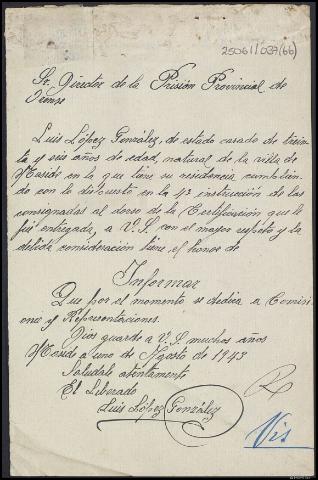 25061/037(66)
Sr. Director de la Prisión Provincial de
Orense
Luis López González, de estado casado de trein-
ta y seis años de edad, natural de la villa de
Maside en la que tiene su residencia cumplien-
do con lo dispuesto en la 4ª instrucción de las
consignadas al dorso de la Certificación que le
fué entregada, a V.S. con el mayor respeto y la
debida consideración tiene el honor de
Informar
Que por el momento se dedica a Comisio
nes y Representaciones.
Dios guarde a V.S. muchos años
Maside a uno de Agosto de 1943
Saludale atentamente
El Liberado
Luis López González
Vis